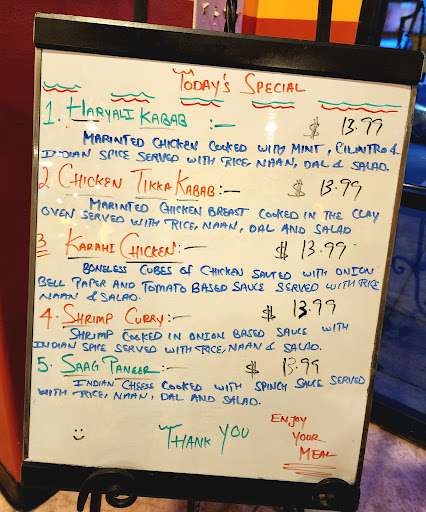 TODAY'S SPECIAL
1. HARYALI KABAB :- $ 13.99
MARINTED CHICKEN COOKED WITH MINT, CILINTRO &
INDIAN SPICE SERVED WITH RICE, NAAN, DAL & SALAD.
2 CHICKEN TIKKA KABAB:- $ 13.99
MARINTED CHICKEN BREAST COOKED IN THE CLAY
OVEN SERVED WITH RICE, NAAN, DAL AND SALAD
3 KARAHI CHICKEN:- $ 13.99
BONELESS CUBES OF CHICKEN SAUTED WITH ONION
BELL PAPER AND TOMATO BASED SAUCE SERVED WITH RICE
NAAN & SALAD.
4. SHRIMP CURRY:- $ 13.99
SHRIMP COOKED IN ONION BASED SAUCE WITH
INDIAN SPICE SERVED WITH RICE, NAAN & SALAD.
5. SAAG PANEER:- $ 13.99
INDIAN CHEESE COOKED WITH SPINCH SAUCE SERVED
WITH RICE, NAAN, DAL AND SALAD.
THANK YOU
ENJOY
YOUR
MEAL